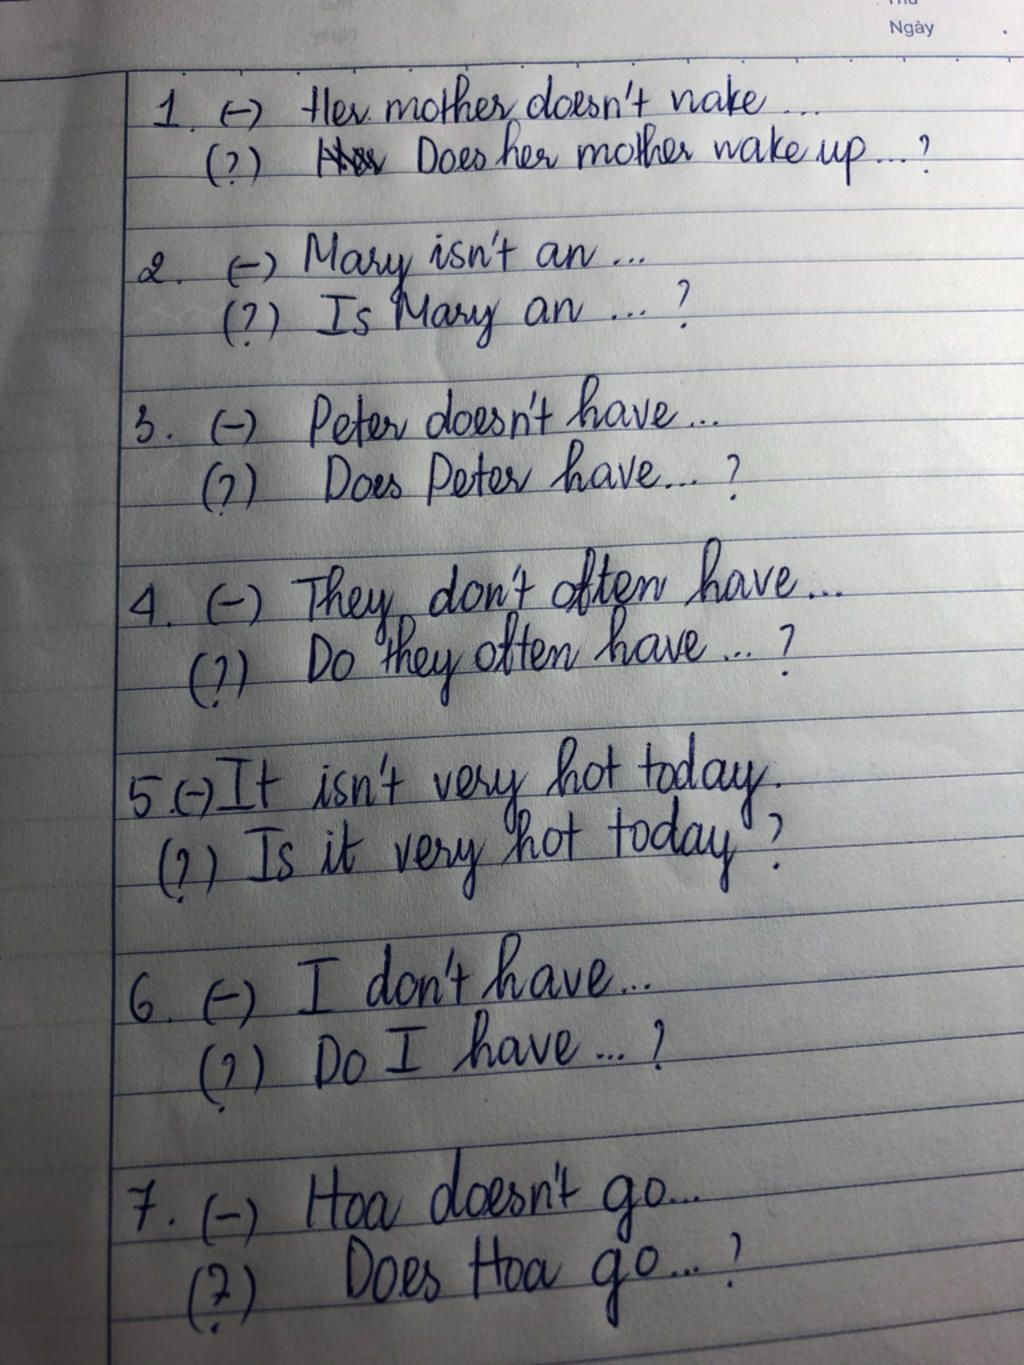 Ngày
1. (-) Her mother doesn't wake ...
(?) Does her mother wake up ... ?
2. (-) Mary isn't an ...
(?) Is Mary an ... ?
3. (-) Peter doesn't have ...
(?) Does Peter have ... ?
4. (-) They don't often have ...
(?) Do they often have ... ?
5. (-) It isn't very hot today.
(?) Is it very hot today ?
6. (-) I don't have ...
(?) Do I have ... ?
7. (-) Hoa doesn't go ...
(?) Does Hoa go ... ?